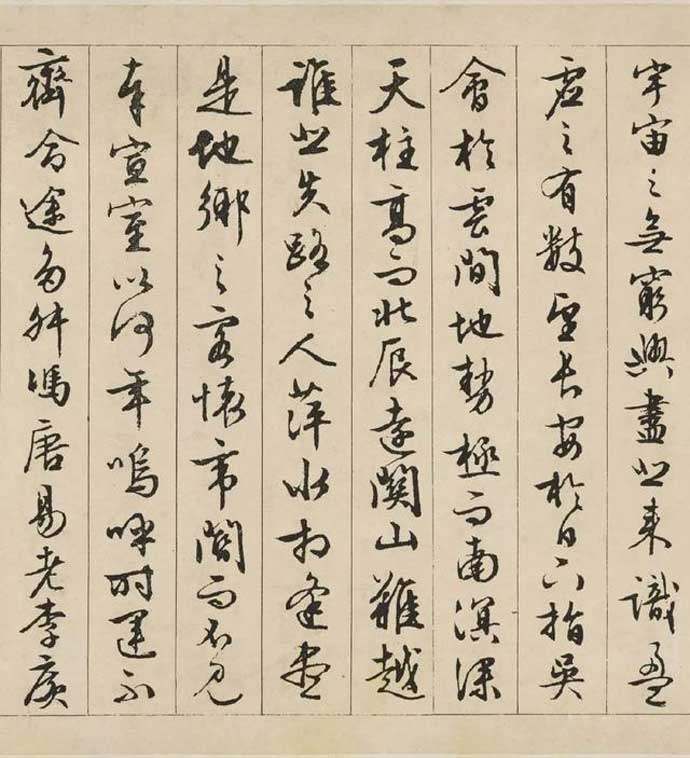 宇宙之無窮興盡悲來識盈
虛之有數望長安於日下指吳
會於雲間地勢極而南溟深
天柱高而北辰遠關山難越
誰悲失路之人萍水相逢盡
是他鄉之客懷帝閽而不見
奉宣室以何年嗚呼時運不
齊命途多舛馮唐易老李廣